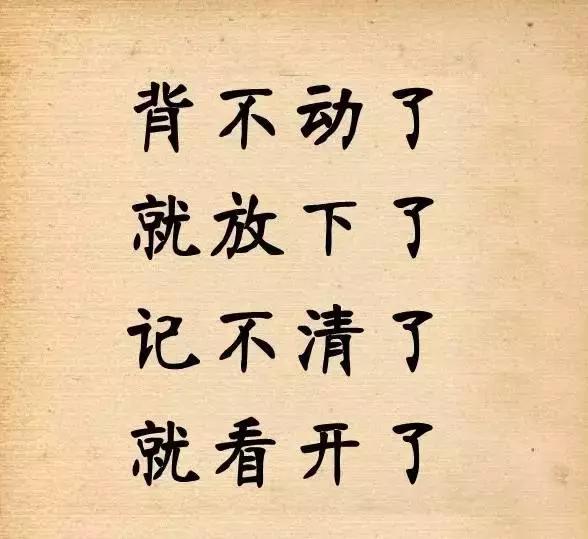 背不动了
就放下了
记不清了
就看开了